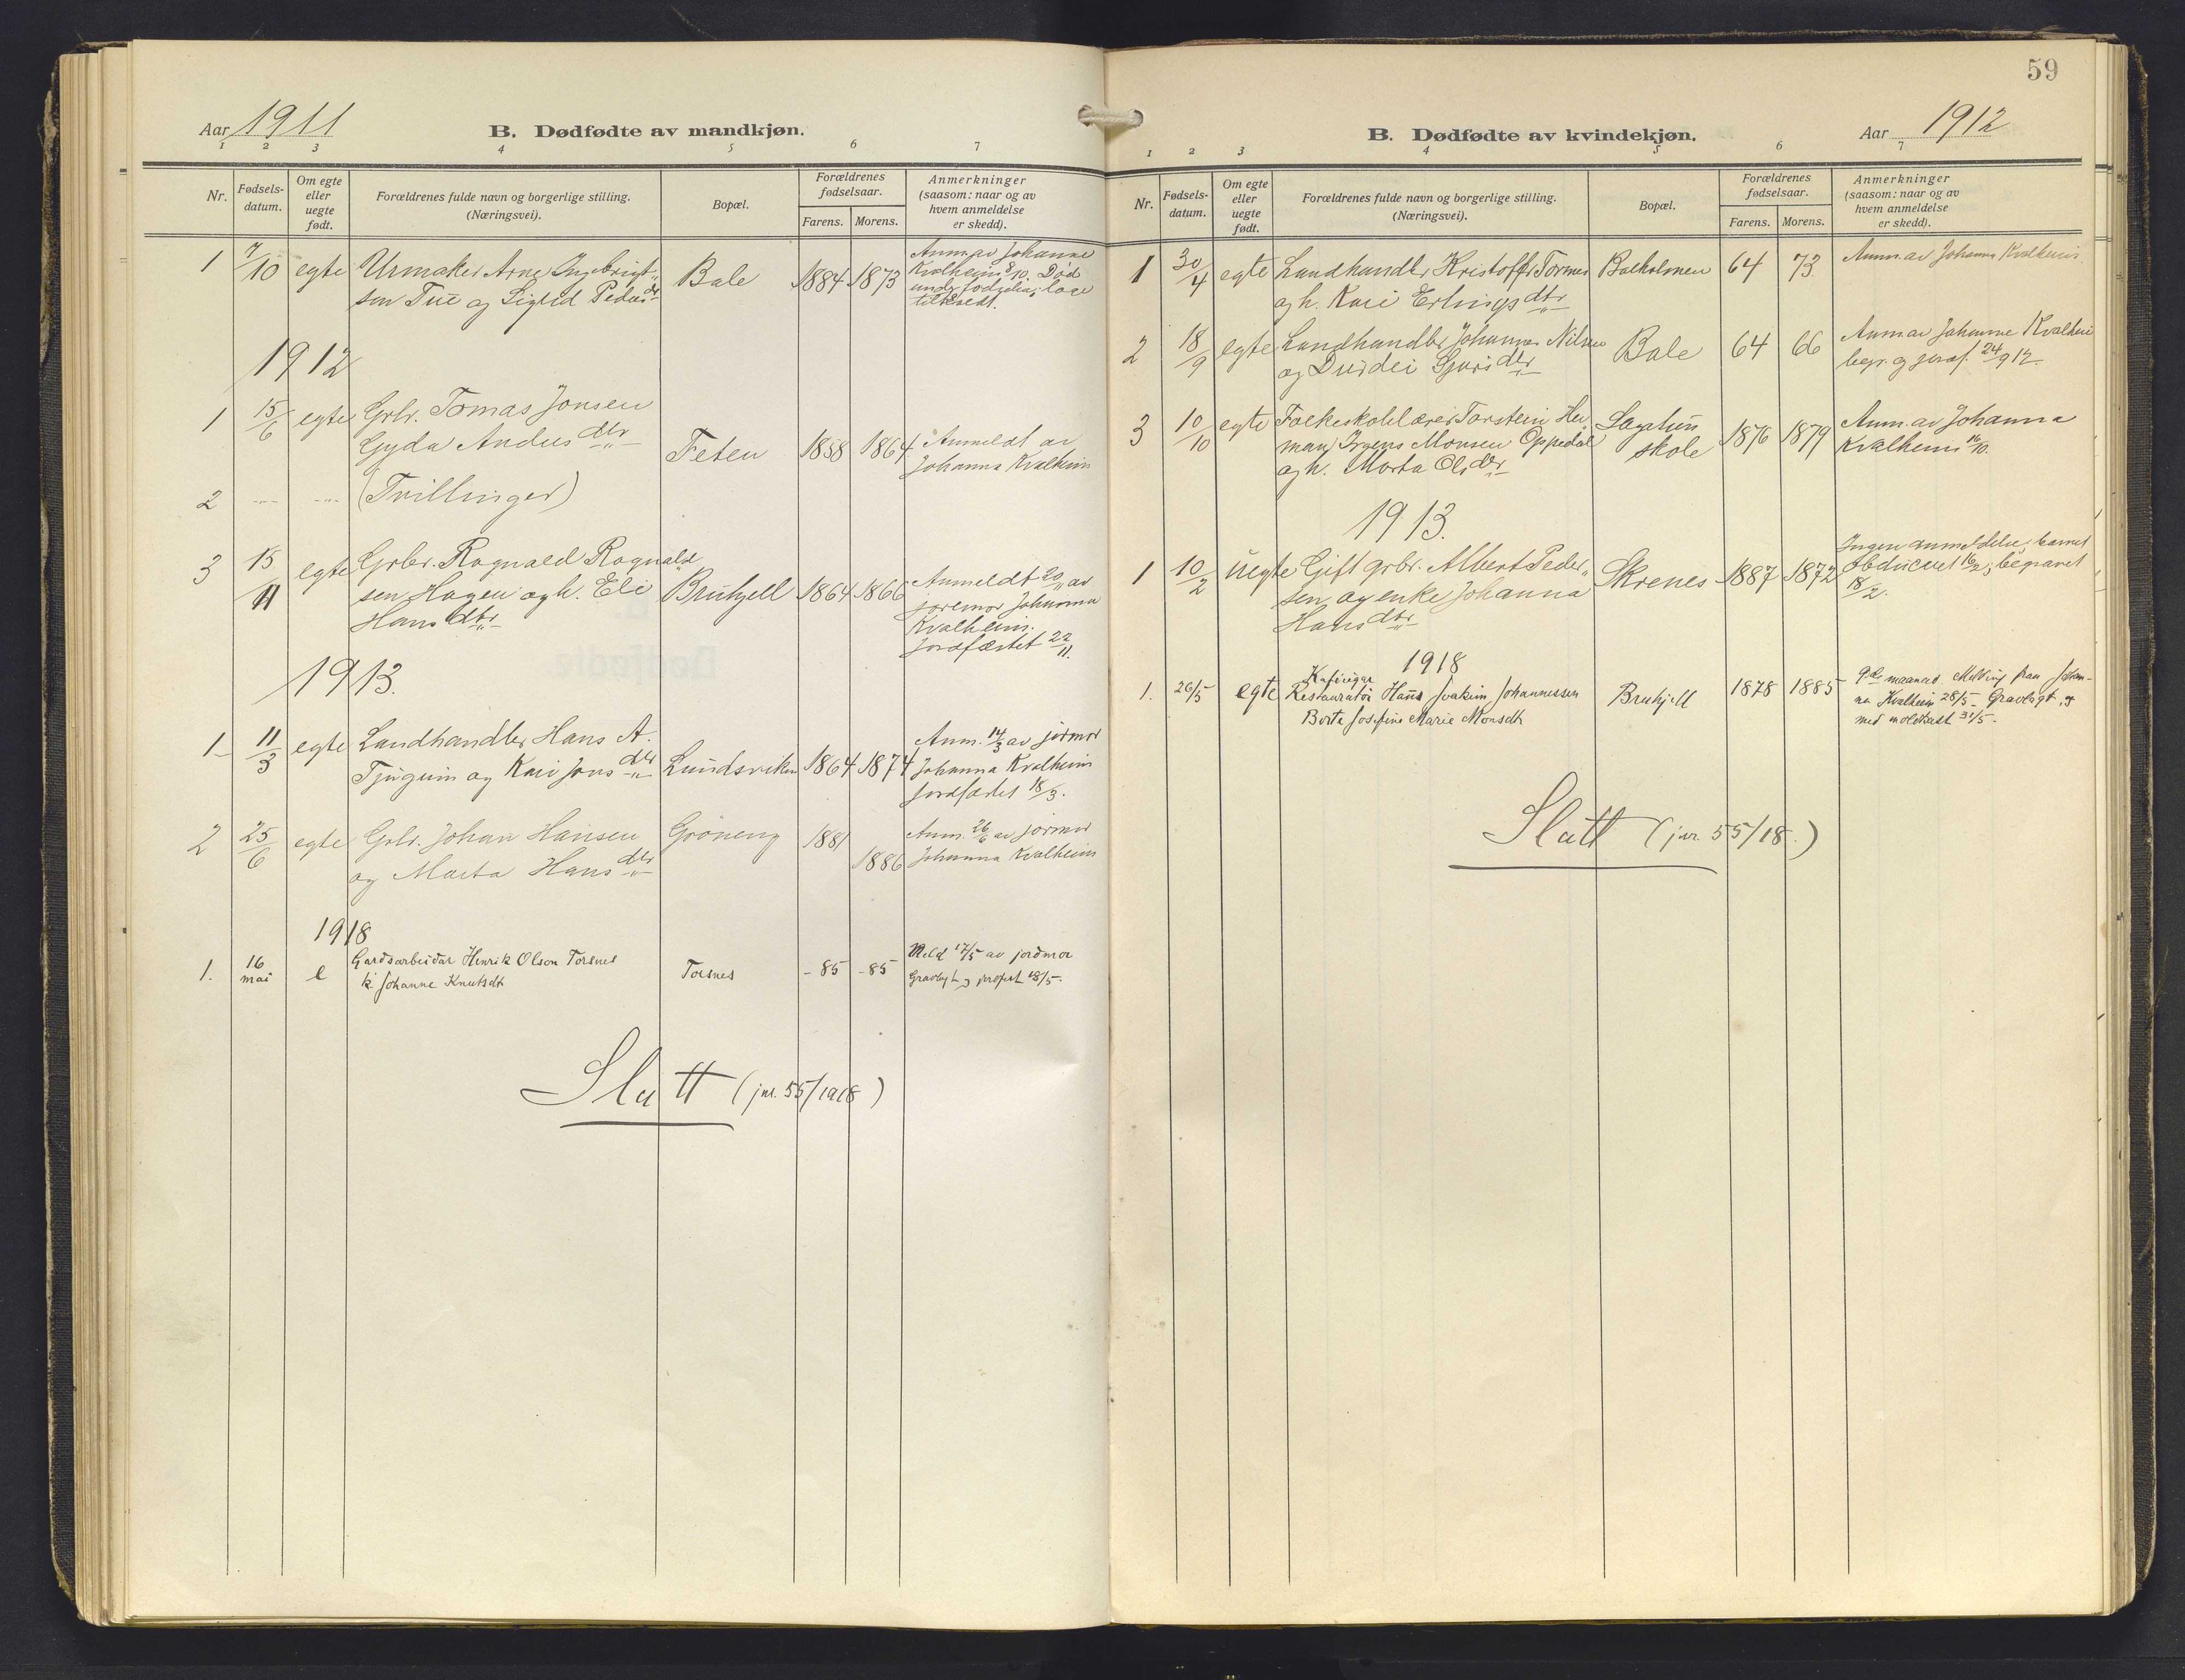 Aar 1911
B. Dødfødte av mandkjøn.
1 2 3 4 5 6 7
Nr.
Fødsels-
datum.
Om egte
eller
uegte
født.
Forældrenes fulde navn og borgerlige stilling.
(Næringsvei).
Bopæl.
Forældrenes
fødselsaar.
Farens. Morens.
Anmerkninger
(saasom: naar og av
hvem anmeldelse
er skedd).
1 7/10 egte Urmaker Arne Ingebrigt„
sen Tue og Sigrid Pedersdr
Bale 1884 1873
Anm. av Johanne
Kvalheim 8/10. Død
under fødselen;
1912
1 15/6 egte Grbr. Tomas Jonsen
Gyda Andersdtr
Feten 1858 1864
Anmeldt av
Johanna Kvalheim
2 — — (Tvillinger)
3 15/11 egte Grbr. Ragnald Ragnald„
sen Hagen og h. Eli
Hansdtr
Bruhjell 1864 1866
Anmeldt 20/11 av
jormor Johanna
Kvalheim.
Jordfæstet 22/11.
1913.
1 11/3 egte Landhandler Hans A.
Tjugum og Kari Jonsdtr
Lundsviken 1864 1874
Anm. 14/3 av jormor
Johanna Kvalheim
Jordfæstet 18/3.
2 25/6 egte Grbr. Johan Hansen
og Marta Hansdtr
Grøneng 1881
1886
Anm. 26/6 av jormor
Johanna Kvalheim
1918
1. 16 mai e Gardsarbeidar Henrik Olson Torsnes
k. Johanne Knutsdt
Torsnes -85 -85
Meld 17/5 av jordmor
Gravlagt og jordfest 18/5.
Slutt (jnr. 55/1918)
59
B. Dødfødte av kvindekjøn.
Aar 1912
1 2 3 4 5 6 7
Nr.
Fødsels-
datum.
Om egte
eller
uegte
født.
Forældrenes fulde navn og borgerlige stilling.
(Næringsvei).
Bopæl.
Forældrenes
fødselsaar.
Farens. Morens.
Anmerkninger
(saasom: naar og av
hvem anmeldelse
er skedd).
1 30/4 egte Landhandler Kristoffer Tornes
og h. Kari Erlingsdtr
Balholmen 64 73.
Anm. av Johanna Kvalheim.
2 18/9 egte Landhandler Johannes Nilsen
og Durdei Sjursdtr
Bale 64 66
Anm av Johanne Kvalheim
begr. og jordf. 24/9 12.
3 10/10 egte Folkeskolelærer Torstein Her„
man Irgens Monsen Oppedal
og h. Marta Olsdtr
Sagatun
skole
1876 1879
Anm. av Johanna
Kvalheim 16/10.
1913.
1 10/2 uegte Gift grbr. Albert Peder„
sen og enke Johanna
Hansdtr
Skrenes 1887 1872
Ingen anmeldelse; barnet
obduceret 16/2; begravet
18/2.
1918
1. 26/5 egte
Kafeeigar
Restauratør Hans Joakim Johannessen
Borte Josefine Marie Monsdt
Bruhjell 1878 1885
9de maanad. Melding fraa Johan-
na Kvalheim 28/5. Gravlagt og
med moldkast 31/5.
Slutt (jnr. 55/18.)